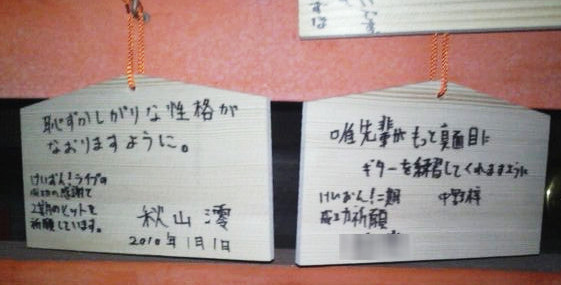 恥ずかしがりな性格が
なおりますように。
けいおん!ライブの
成功の感謝て
2期のヒットを
祈願しています。
秋山澪
2010年1月1日
唯先輩がもっと真面目に
ギターを練習してくれますように
けいおん!二期
中野梓
成功祈願